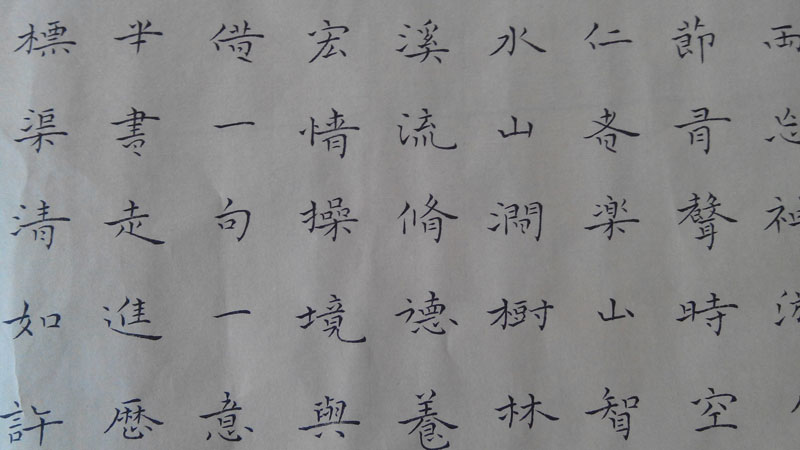 節聲時空
仁者楽山智
水山澗樹林
溪流脩德養
宏情操境與
借一句一意
半書走進歷
標渠清如許